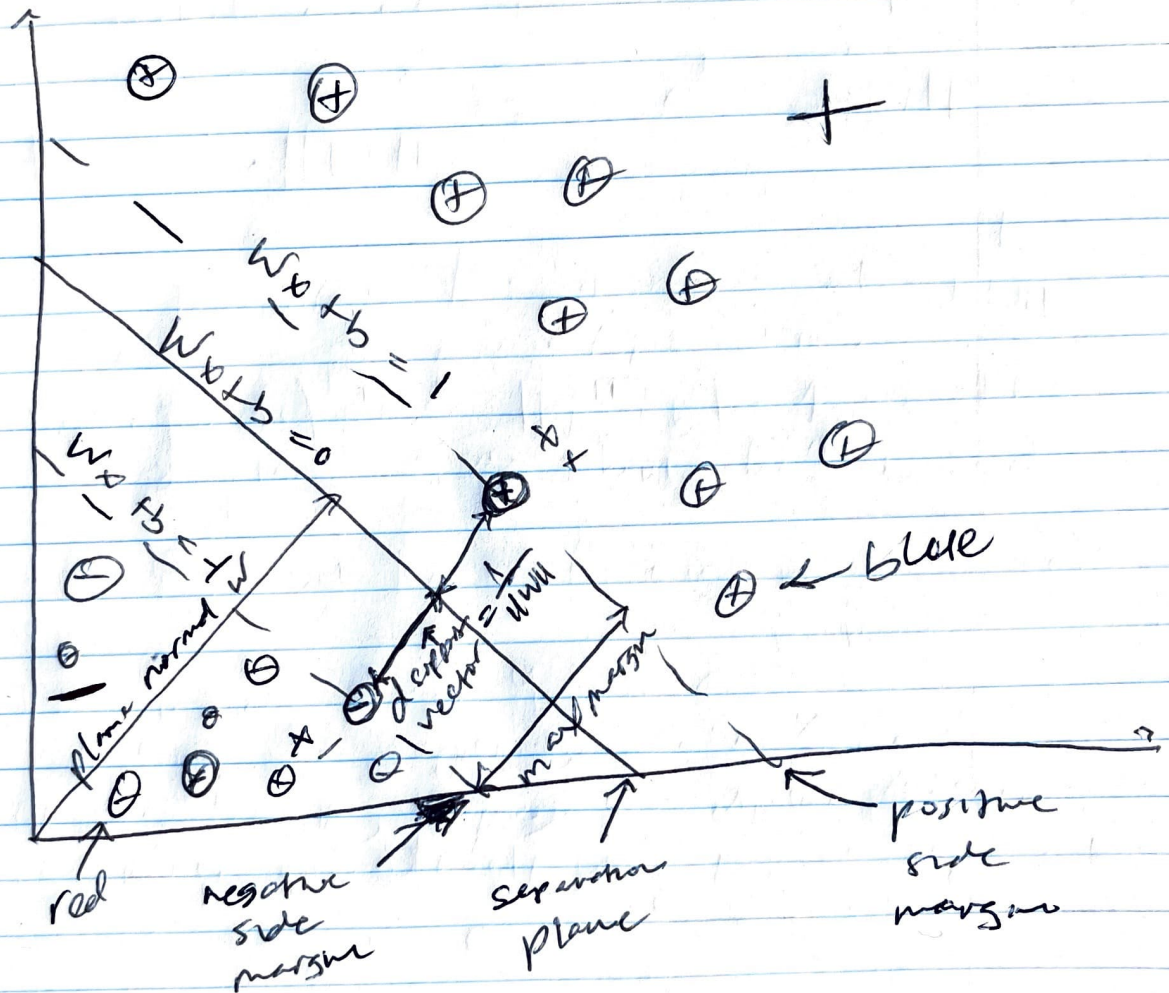 +
Wx+b=1
Wx+b=0
x+
Wx+b=-1
blue
W
plane normal
support
vector
= 1/||W||
max margin
x-
red
negative
side
margin
separation
plane
positive
side
margin